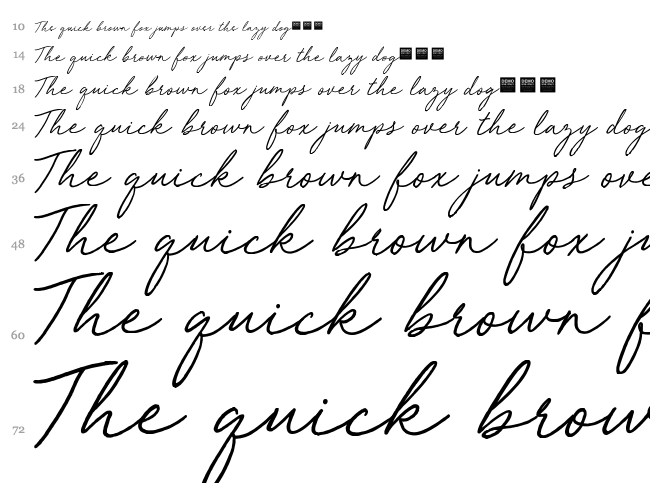 10 The quick brown fox jumps over the lazy dog
14 The quick brown fox jumps over the lazy dog
18 The quick brown fox jumps over the lazy dog DEMO DEMO DEMO
24 The quick brown fox jumps over the lazy dog
36 The quick brown fox jumps ove
48 The quick brown fox ju
60 The quick brown f
72 The quick brow